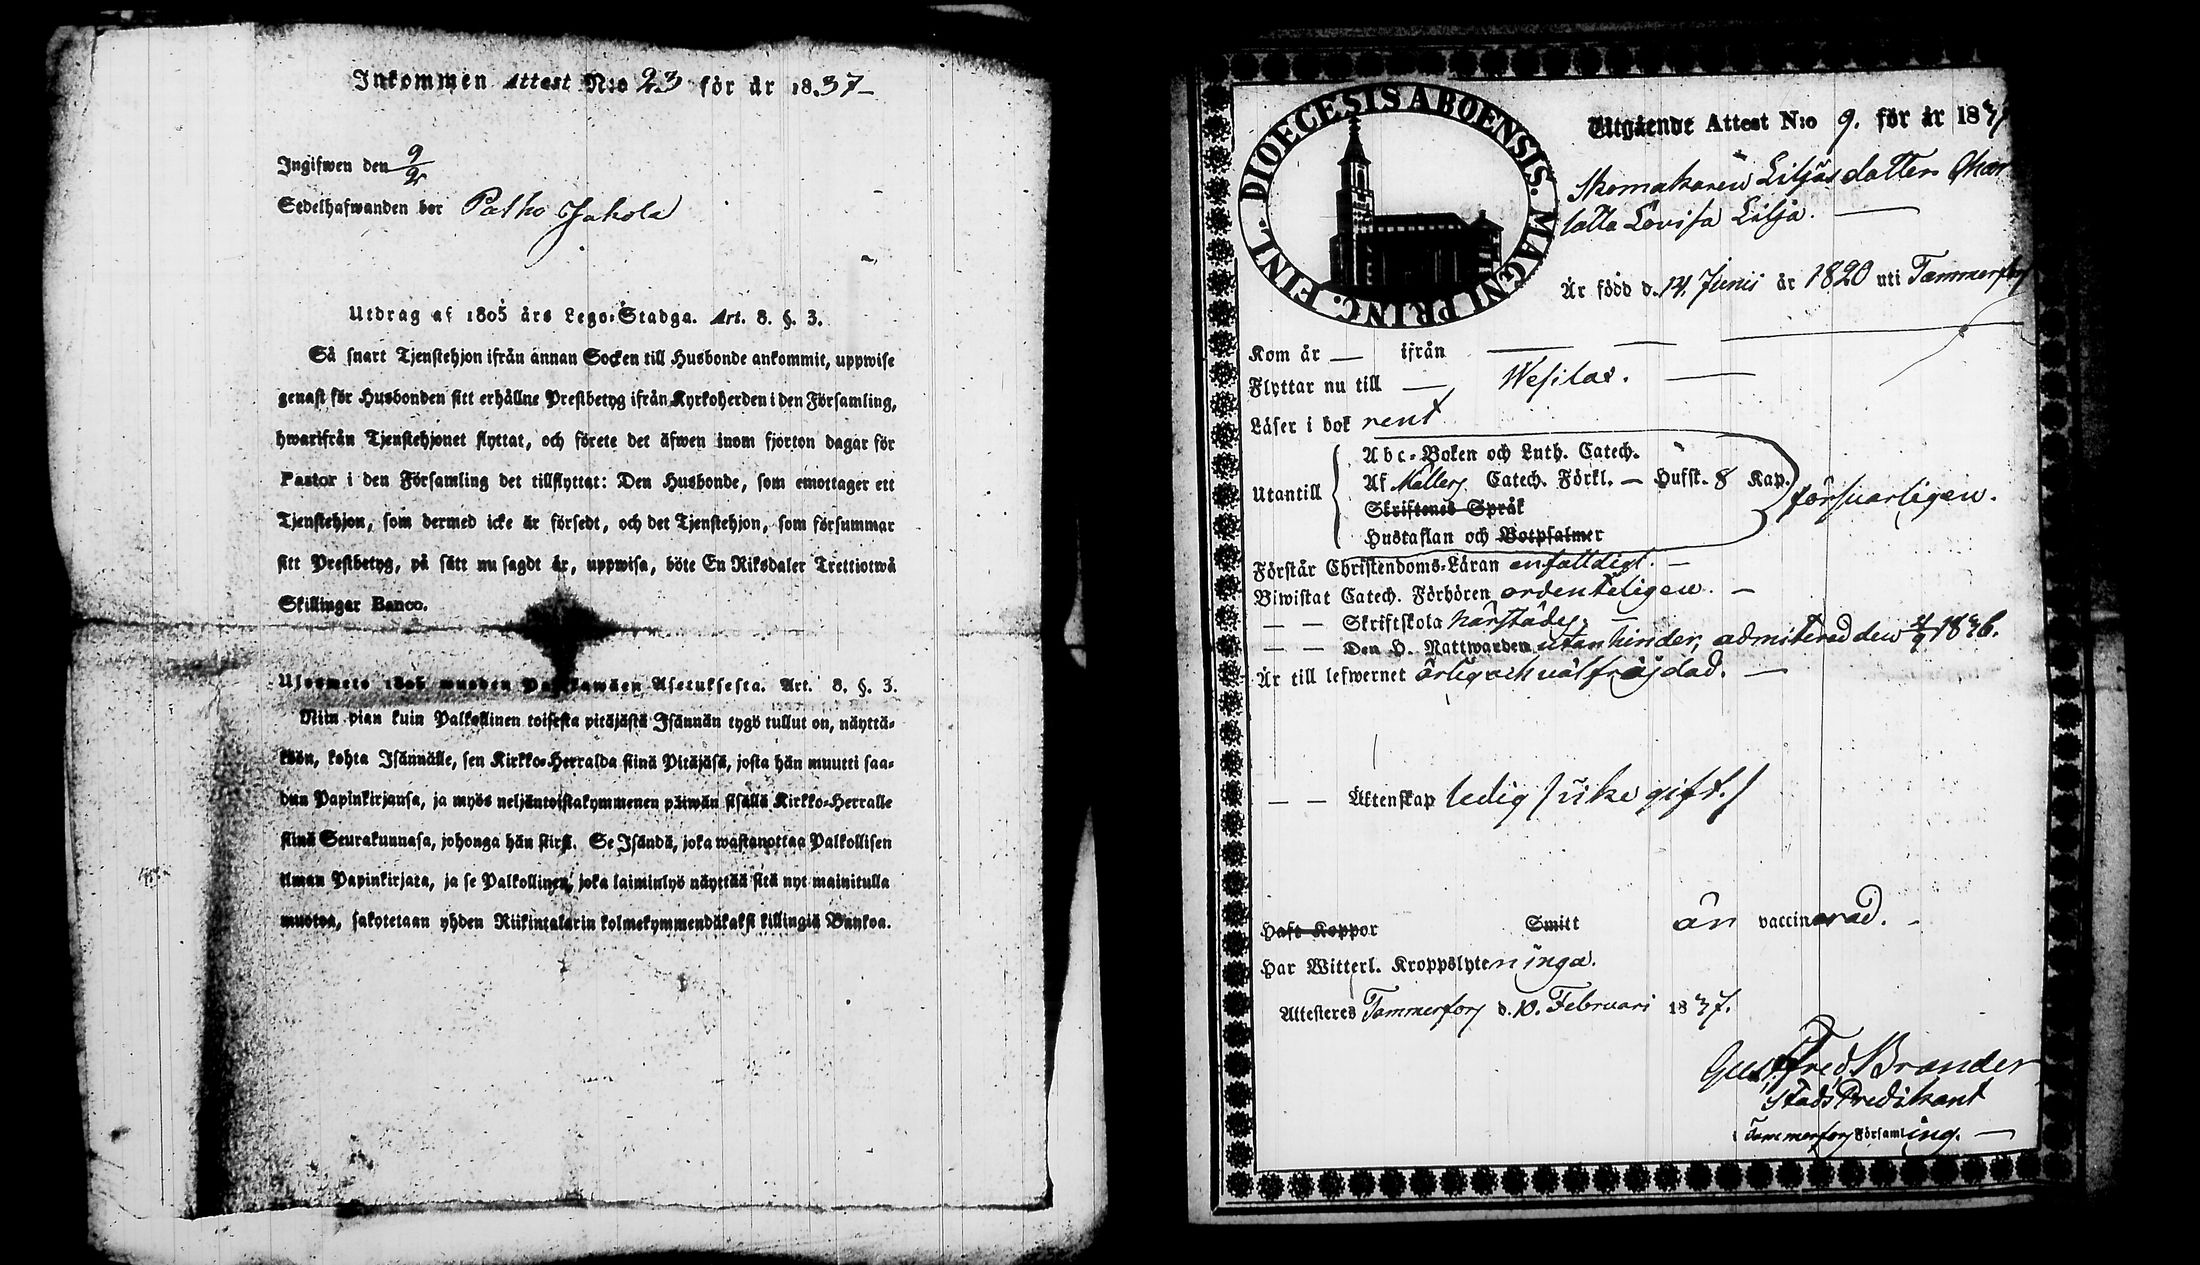 Inkommen Attest N:o 23 för år 18.37
Ingifwen den 9/2
Sedelhafwanden bor Palho Jakola
Utdrag af 1805 års Lego-Stadga. Art. 8. §. 3.
Så snart Tjenstehjon ifrån annan Socken till Husbonde ankommit, uppwise
genast för Husbonden sitt erhållne Prestbetyg ifrån Kyrkoherden i den Församling,
hwarifrån Tjenstehjonet flyttat, och förete det äfwen inom fjorton dagar för
Pastor i den Församling det tillflyttat: Den Husbonde, som emottager ett
Tjenstehjon, som dermed icke är försedt, och det Tjenstehjon, som försummar
sitt Prestbetyg, på sätt nu sagdt är, uppwisa, böte En Riksdaler Trettiotwå
Skillingar Banco.
Ulosweto 1805 wuoden Palkkawäen Asetuksesta. Art. 8. §. 3.
Niin pian kuin Palkollinen toisesta pitäjästä Isännän tygö tullut on, näyttä-
köön, kohta Isännälle, sen Kirkko-Herralda siinä Pitäjäsä, josta hän muutti saa-
dun Papinkirjansa, ja myös neljäntoistakymmenen päiwän sisällä Kirkko-Herralle
siinä Seurakunnasa, johonga hän siirsi. Se Isändä, joka wastanottaa Palkollisen
ilman Papinkirjata, ja se Palkollinen, joka laiminlyö näyttää sitä nyt mainitulla
muotoa, sakotetaan yhden Riikintalarin kolmekymmendäkaksi killingiä Bankoa.
DIOECESIS ABOENSIS. MAGNI PRINC. FINL.
Utgående Attest N:o 9. för år 1837
Skomakaren Liljas dotter Char
lotta Lovisa Lilja.
Är född d. 14. Junii år 1820 uti Tammerfors
Kom år — ifrån
Flyttar nu till — Wesilax.
Läser i bok rent
Abc-Boken och Luth. Catech.
Utantill Af Möllers Catech. Förkl. — Hufst. 8 Kap. försvarligen.
Skriftenes Språk
Hustaflan och Botpsalmer
Förstår Christendoms-Läran enfaldigt. —
Biwistat Catech. Förhören ordenteligen. —
— — Skriftskola härstädes. —
— — Den H. Nattwarden utan hinder, admitterad den 4/9 1836.
Är till lefwernet ärlig och välfräjdad. —
— — Äktenskap ledig /: icke gift. /
Haft Koppor Smitt än vaccinerad. —
Har Witterl. Kroppslyten inga.
Attesteres Tammerfors d. 10. Februari 1837.
Gust. Fred. Brander
StadsPredikant
i Tammerfors Församling. —